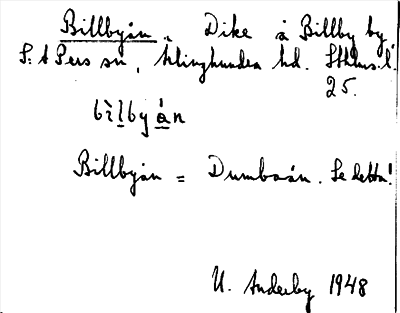 Billbyån = Dike å Billby by
S:t Pers sn, Klinghundra hd. Sthlms l.
25.
bìlbyån
Billbyån = Dumboån. Se detta!
U. Anderby 1948